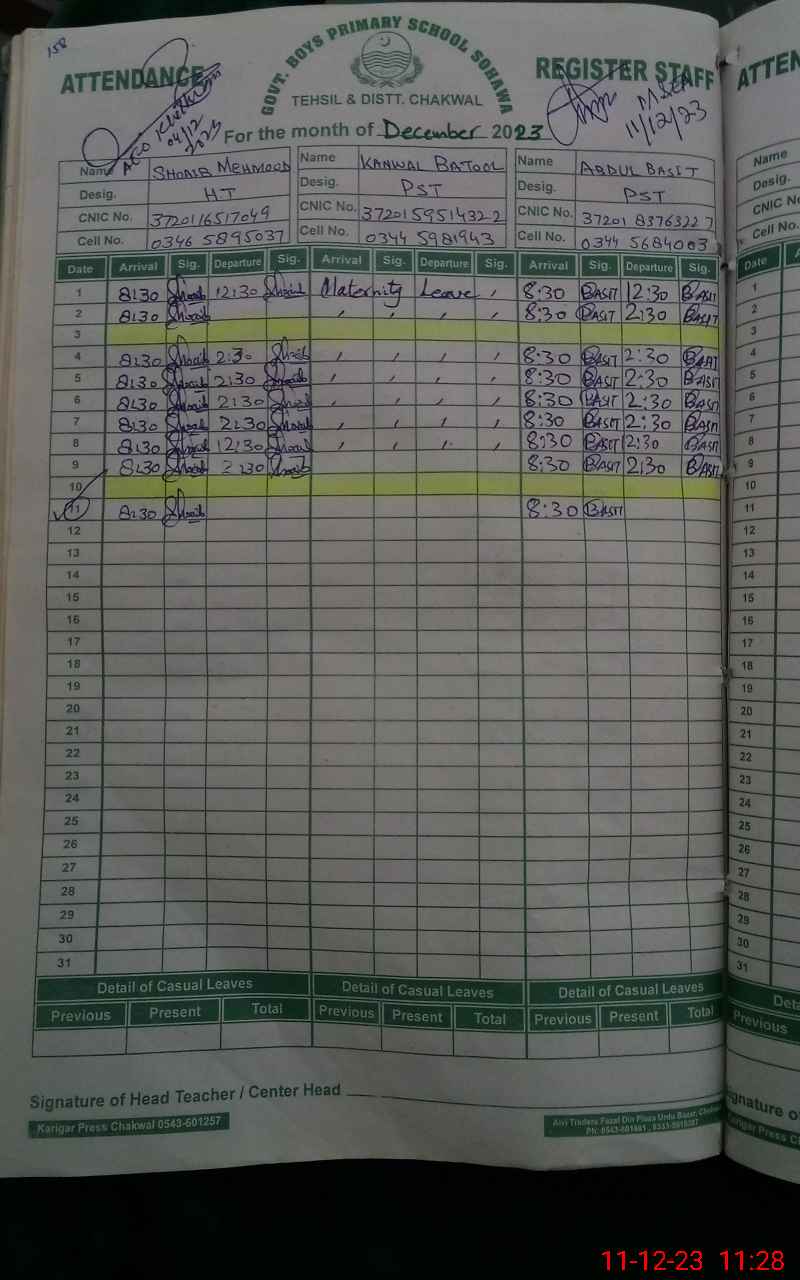 158
GOVT. BOYS PRIMARY SCHOOL SOHAWA
ATTENDANCE REGISTER STAFF
TEHSIL & DISTT. CHAKWAL
AEO
04/12
2023
MSEA
11/12/23
For the month of December 2023
Name SHOAIB MEHMOOD Name KANWAL BATOOL Name ABDUL BASIT
Desig. HT Desig. PST Desig. PST
CNIC No. 3720116517049 CNIC No. 3720159514322 CNIC No. 3720183763227
Cell No. 0346 5895037 Cell No. 0344 5981943 Cell No. 0344 5684003
Date Arrival Sig. Departure Sig. Arrival Sig. Departure Sig. Arrival Sig. Departure Sig.
1 8:30 Shoaib 12:30 Shoaib Maternity Leave , 8:30 BASIT 12:30 BASIT
2 8:30 Shoaib , , , , 8:30 BASIT 2:30 BASIT
3
4 8:30 Shoaib 2:30 Shoaib , , , , 8:30 BASIT 2:30 BASIT
5 8:30 Shoaib 2:30 Shoaib , , , , 8:30 BASIT 2:30 BASIT
6 8:30 Shoaib 2:30 Shoaib , , , , 8:30 BASIT 2:30 BASIT
7 8:30 Shoaib 2:30 Shoaib , , , , 8:30 BASIT 2:30 BASIT
8 8:30 Shoaib 12:30 Shoaib , , , , 8:30 BASIT 12:30 BASIT
9 8:30 Shoaib 2:30 Shoaib 8:30 BASIT 2:30 BASIT
10
11 8:30 Shoaib 8:30 BASIT
12
13
14
15
16
17
18
19
20
21
22
23
24
25
26
27
28
29
30
31
Detail of Casual Leaves Detail of Casual Leaves Detail of Casual Leaves
Previous Present Total Previous Present Total Previous Present Total
Signature of Head Teacher / Center Head
Karigar Press Chakwal 0543-601257
ATTEN
Name
Desig.
CNIC No
Cell No.
Date A
1
2
3
4
5
6
7
8
9
10
11
12
13
14
15
16
17
18
19
20
21
22
23
24
25
26
27
28
29
30
31
Deta
Previous
ignature o
Karigar Press Ch
11-12-23 11:28